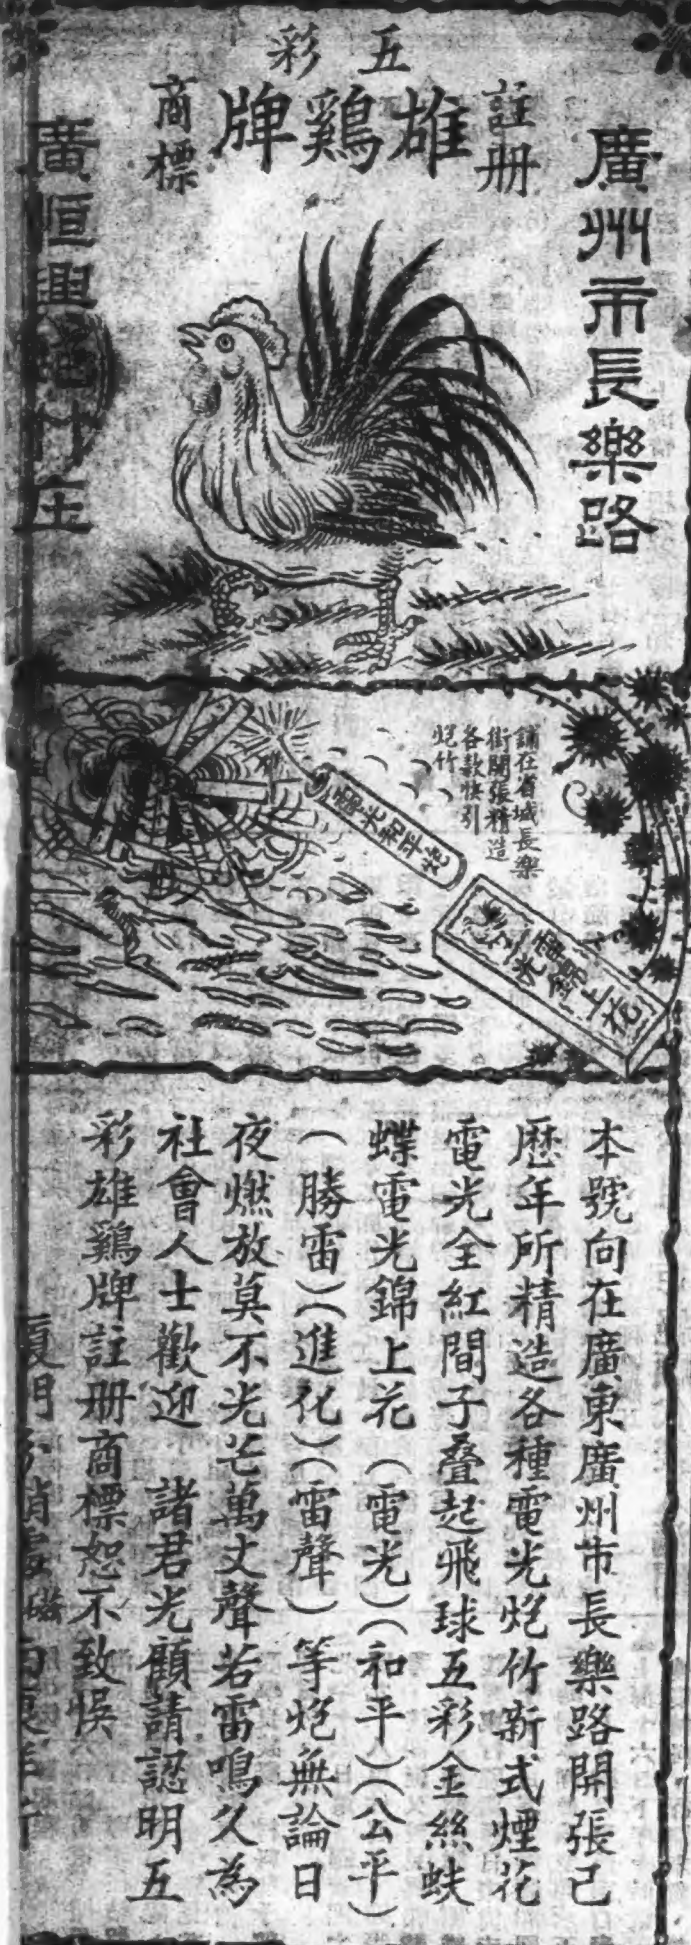 五彩
註册
雄鷄牌
商標
廣州市長樂路
廣恒興炮竹庄
舖在省城長樂
街開張精造
各款快引
炮竹
電光和平炮
本號向在廣東廣州市長樂路開張已
歷年所精造各種電光炮竹新式煙花
電光全紅間子叠起飛球五彩金絲蚨
蝶電光錦上花（電光）（和平）（公平）
（勝雷）（進化）（雷聲）等炮無論日
夜燃放莫不光芒萬丈聲若雷鳴久為
社會人士歡迎　諸君光顧請認明五
彩雄鷄牌註册商標恕不致悮